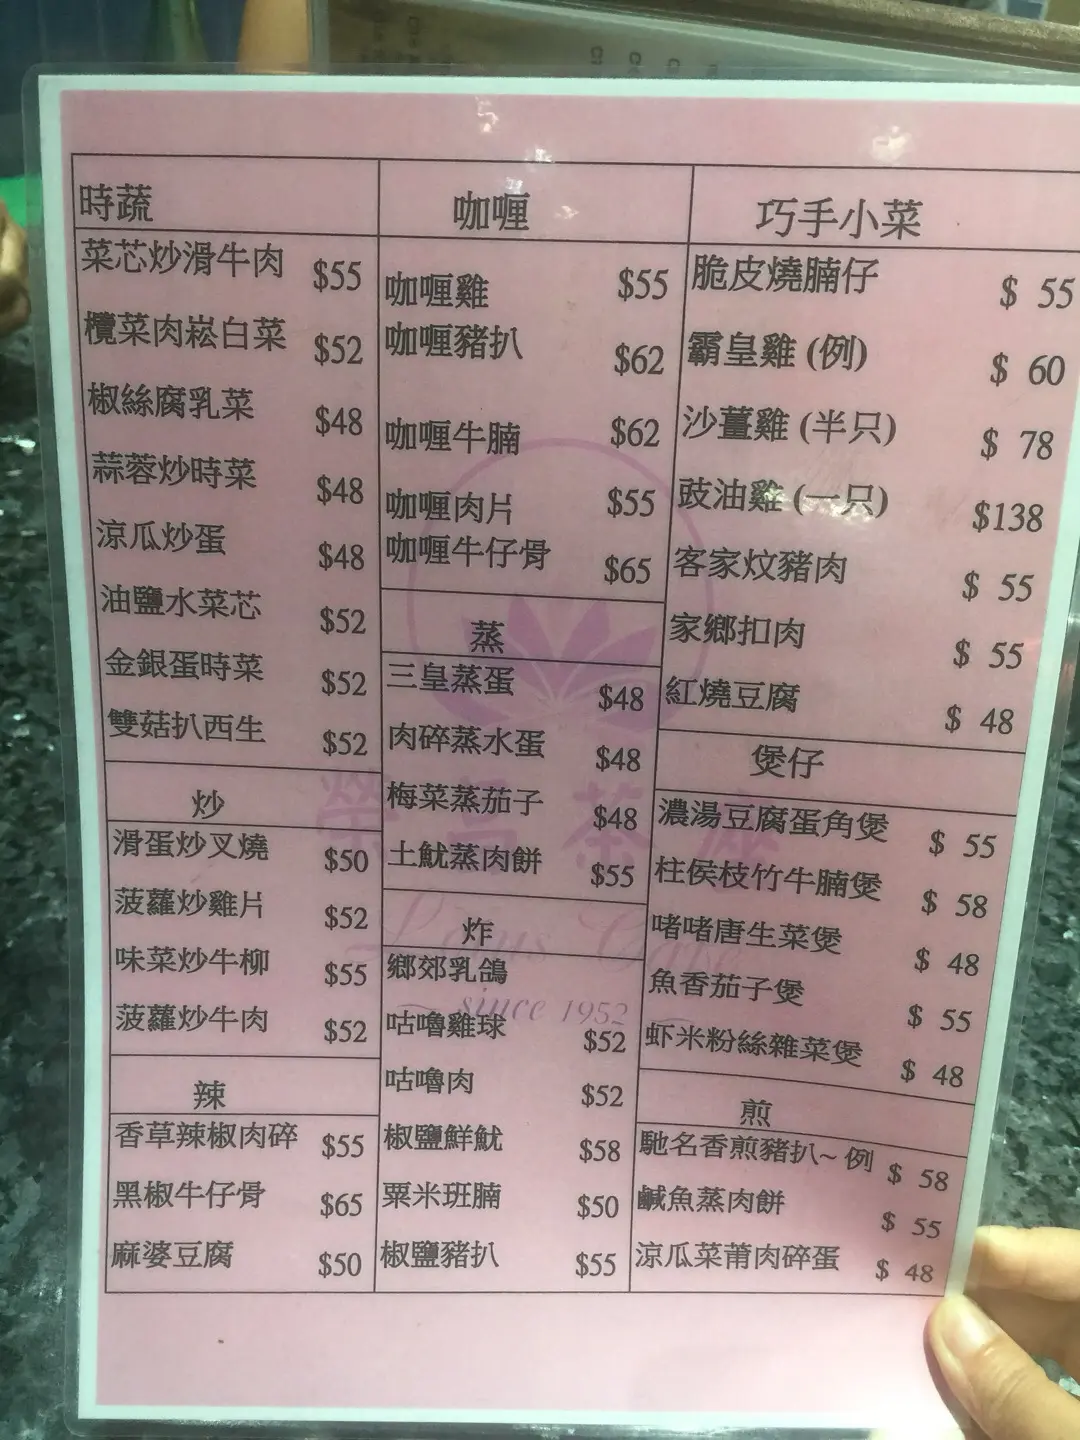 時蔬
菜芯炒滑牛肉 $55
欖菜肉崧白菜 $52
椒絲腐乳菜 $48
蒜蓉炒時菜 $48
涼瓜炒蛋 $48
油鹽水菜芯 $52
金銀蛋時菜 $52
雙菇扒西生 $52
炒
滑蛋炒叉燒 $50
菠蘿炒雞片 $52
味菜炒牛柳 $55
菠蘿炒牛肉 $52
辣
香草辣椒肉碎 $55
黑椒牛仔骨 $65
麻婆豆腐 $50
咖喱
咖喱雞 $55
咖喱豬扒 $62
咖喱牛腩 $62
咖喱肉片 $55
咖喱牛仔骨 $65
蒸
三皇蒸蛋 $48
肉碎蒸水蛋 $48
梅菜蒸茄子 $48
土魷蒸肉餅 $55
炸
鄉郊乳鴿
咕嚕雞球 $52
咕嚕肉 $52
椒鹽鮮魷 $58
粟米班腩 $50
椒鹽豬扒 $55
巧手小菜
脆皮燒腩仔 $ 55
霸皇雞 (例) $ 60
沙薑雞 (半只) $ 78
豉油雞 (一只) $138
客家炆豬肉 $ 55
家鄉扣肉 $ 55
紅燒豆腐 $ 48
煲仔
濃湯豆腐蛋角煲 $ 55
柱侯枝竹牛腩煲 $ 58
啫啫唐生菜煲 $ 48
魚香茄子煲 $ 55
虾米粉絲雜菜煲 $ 48
煎
馳名香煎豬扒~ 例 $ 58
鹹魚蒸肉餅 $ 55
涼瓜菜莆肉碎蛋 $ 48
茶
Lotus Cafe
since 1952